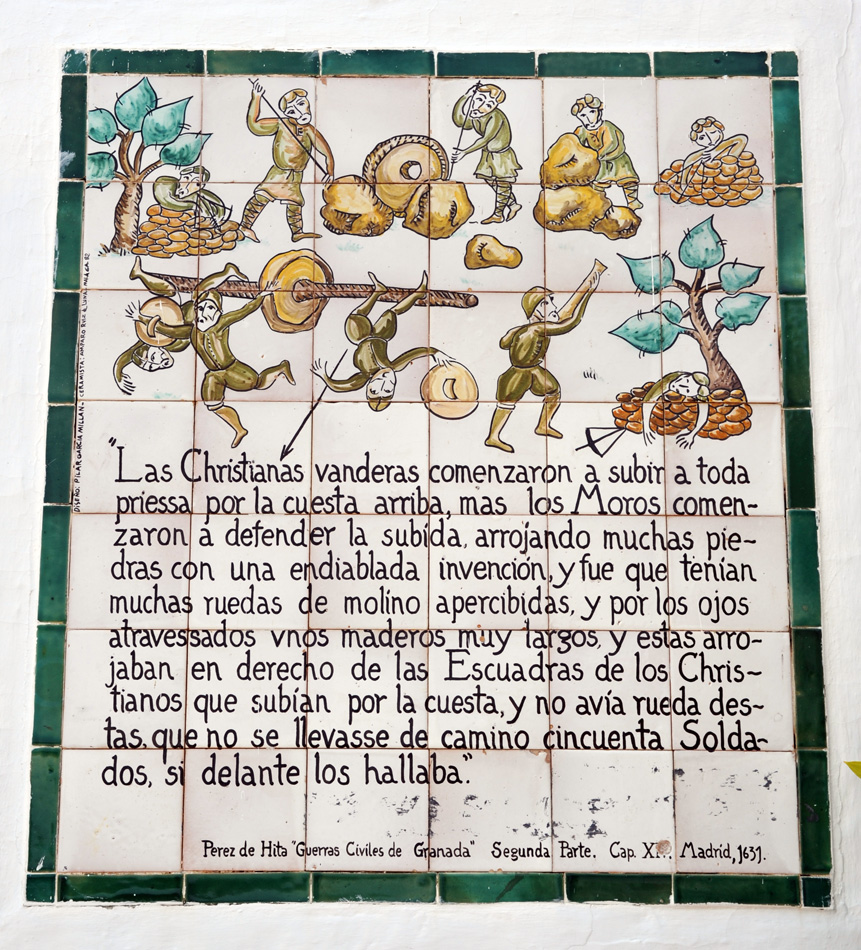 DISEÑO: PILAR GARCÍA MILLÁN - CERAMISTA: AMPARO RUIZ de LUNA. MALAGA.82
"Las Christianas vanderas comenzaron a subir a toda
priessa por la cuesta arriba, mas los Moros comen-
zaron à defender la subida, arrojando muchas pie-
dras con una endiablada invención, y fue que tenían
muchas ruedas de molino apercibidas, y por los ojos
atravessados vnos maderos muy largos, y estas arro-
jaban en derecho de las Escuadras de los Chris-
tianos que subían por la cuesta, y no avía rueda des-
tas, que no se llevasse de camino cincuenta Solda-
dos, si delante los hallaba".
Perez de Hita "Guerras Civiles de Granada" Segunda Parte. Cap. Madrid, 1631.